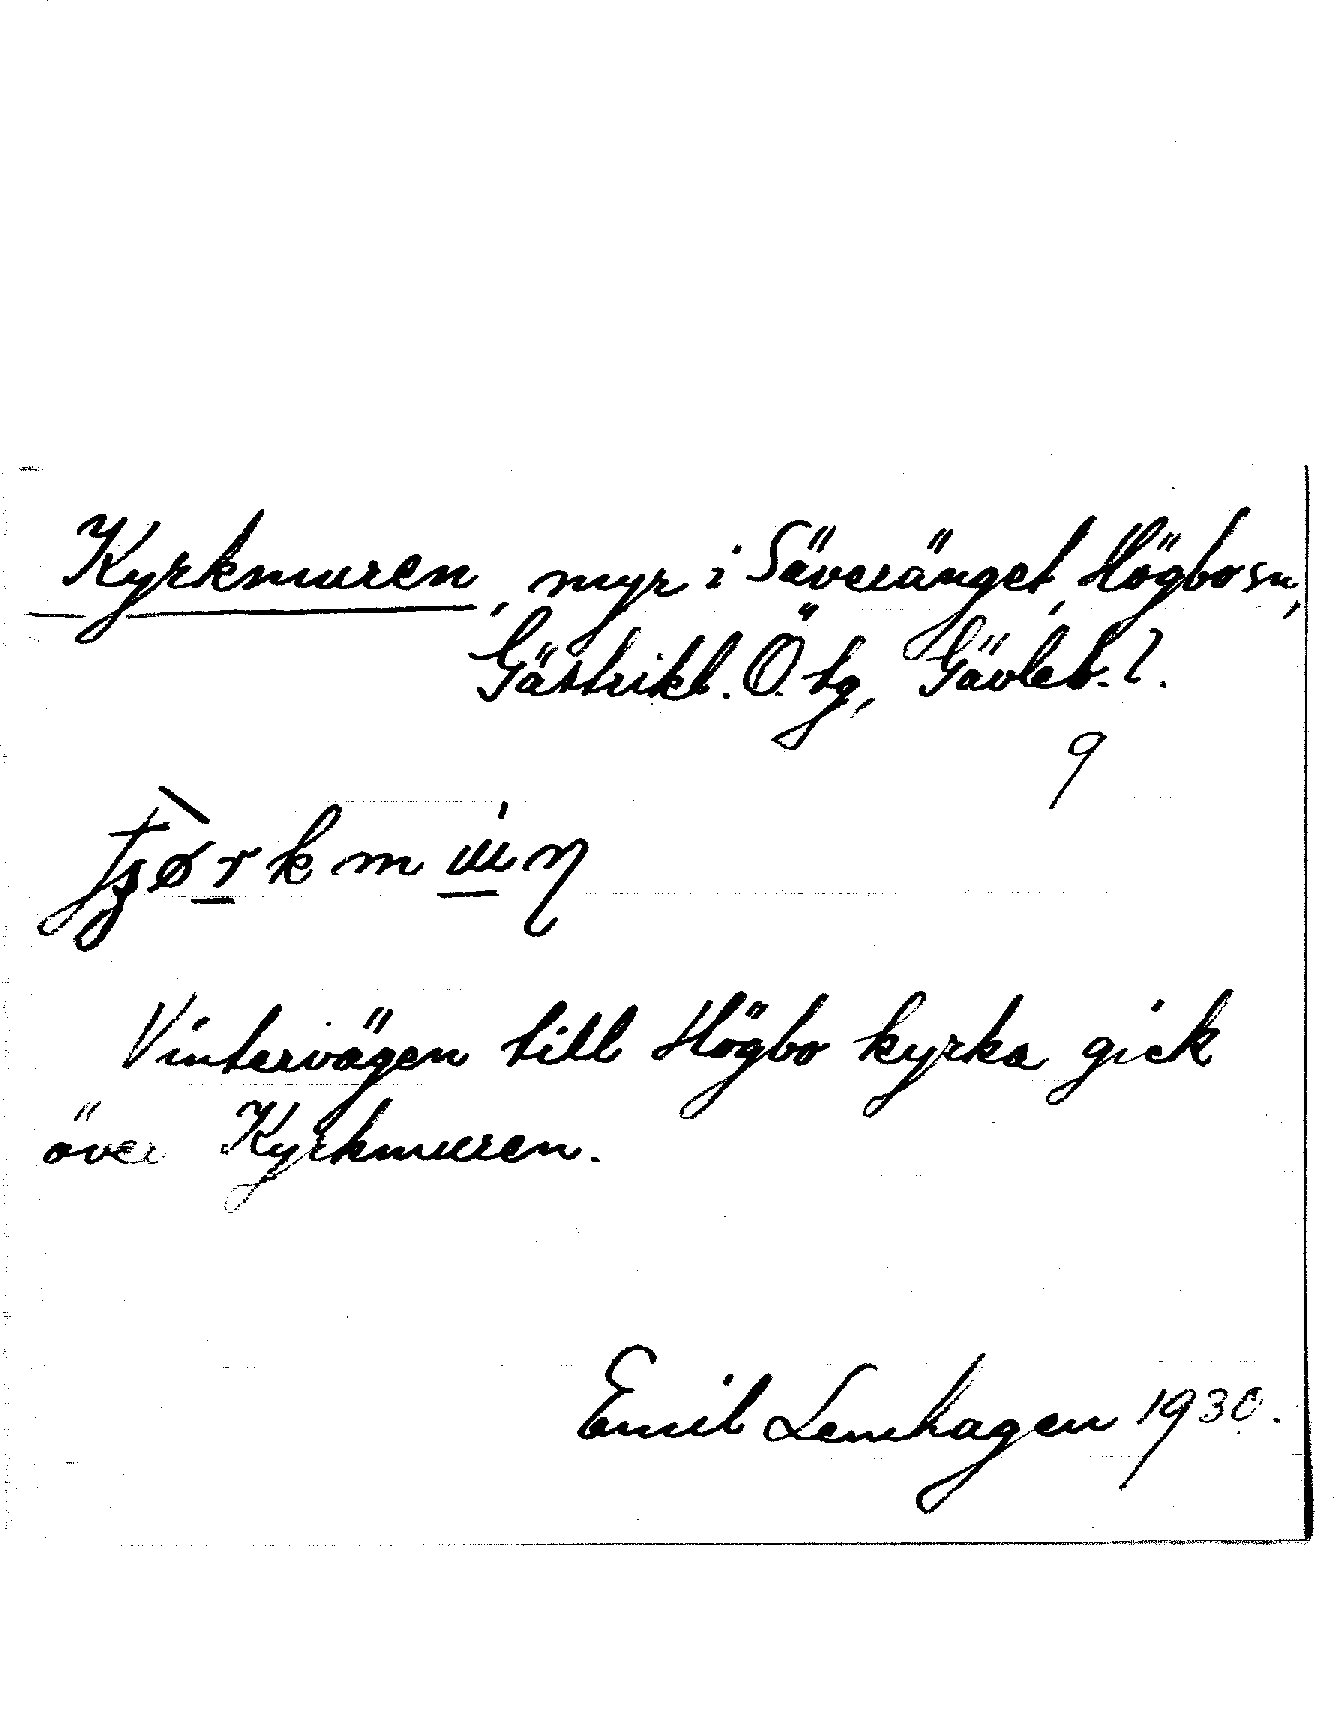 Kyrkmuren, myr i Säveränget, Högbo sn,
Gästrikl. Ö. tg, Gävleb. l.
9
Vintervägen till Högbo kyrka gick
över Kyrkmuren.
Emil Lenhagen 1930.